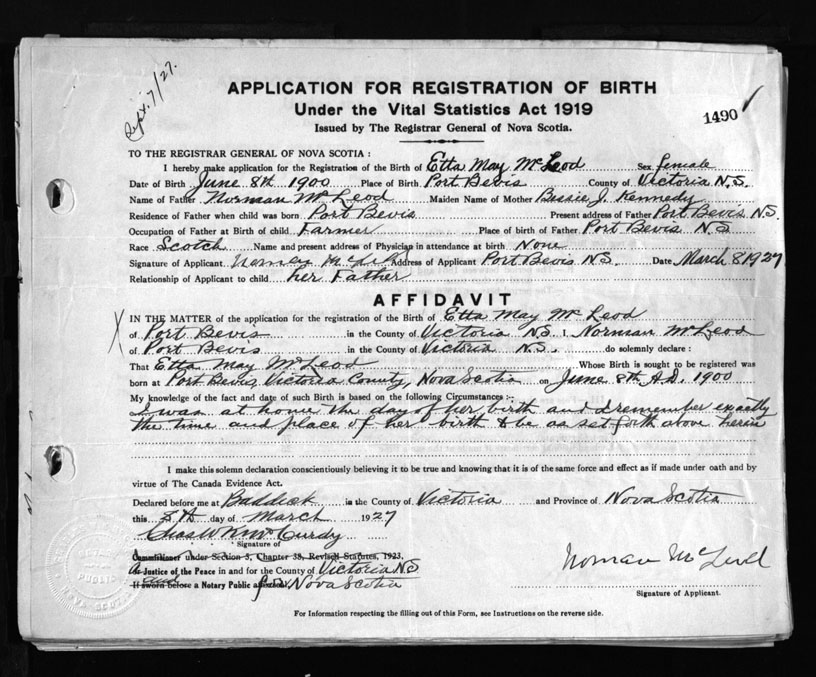 Sept. 7/27.
APPLICATION FOR REGISTRATION OF BIRTH
Under the Vital Statistics Act 1919
1490
Issued by The Registrar General of Nova Scotia.
TO THE REGISTRAR GENERAL OF NOVA SCOTIA :
I hereby make application for the Registration of the Birth of Etta May McLeod Sex female
Date of Birth June 8th 1900 Place of Birth Port Bevis County of Victoria N.S.
Name of Father Norman McLeod Maiden Name of Mother Bessie J. Kennedy
Residence of Father when child was born Port Bevis Present address of Father Port Bevis N.S.
Occupation of Father at Birth of child Farmer Place of birth of Father Port Bevis N.S
Race Scotch Name and present address of Physician in attendance at birth None
Signature of Applicant Address of Applicant Port Bevis N.S. Date March 8 1927
Relationship of Applicant to child her Father
AFFIDAVIT
IN THE MATTER of the application for the registration of the Birth of Etta May McLeod
of Port Bevis in the County of Victoria N.S. I, Norman McLeod
of Port Bevis in the County of Victoria N.S. do solemnly declare :
That Etta May McLeod Whose Birth is sought to be registered was
born at Port Bevis, Victoria County, Nova Scotia on June 8th A.D. 1900
My knowledge of the fact and date of such Birth is based on the following Circumstances :-
I was at home the day of her birth and I remember exactly
the time and place of her birth to be as set forth above herein
I make this solemn declaration conscientiously believing it to be true and knowing that it is of the same force and effect as if made under oath and by
virtue of The Canada Evidence Act.
Declared before me at Baddeck in the County of Victoria and Province of Nova Scotia
this 8th day of March 1927
Chas W K McCurdy
Signature of
Commissioner under Section 3, Chapter 38, Revised Statutes, 1923,
Justice of the Peace in and for the County of Victoria N S
If sworn before a Notary Public Nova Scotia
Norman McLeod
Signature of Applicant.
For Information respecting the filling out of this Form, see Instructions on the reverse side.